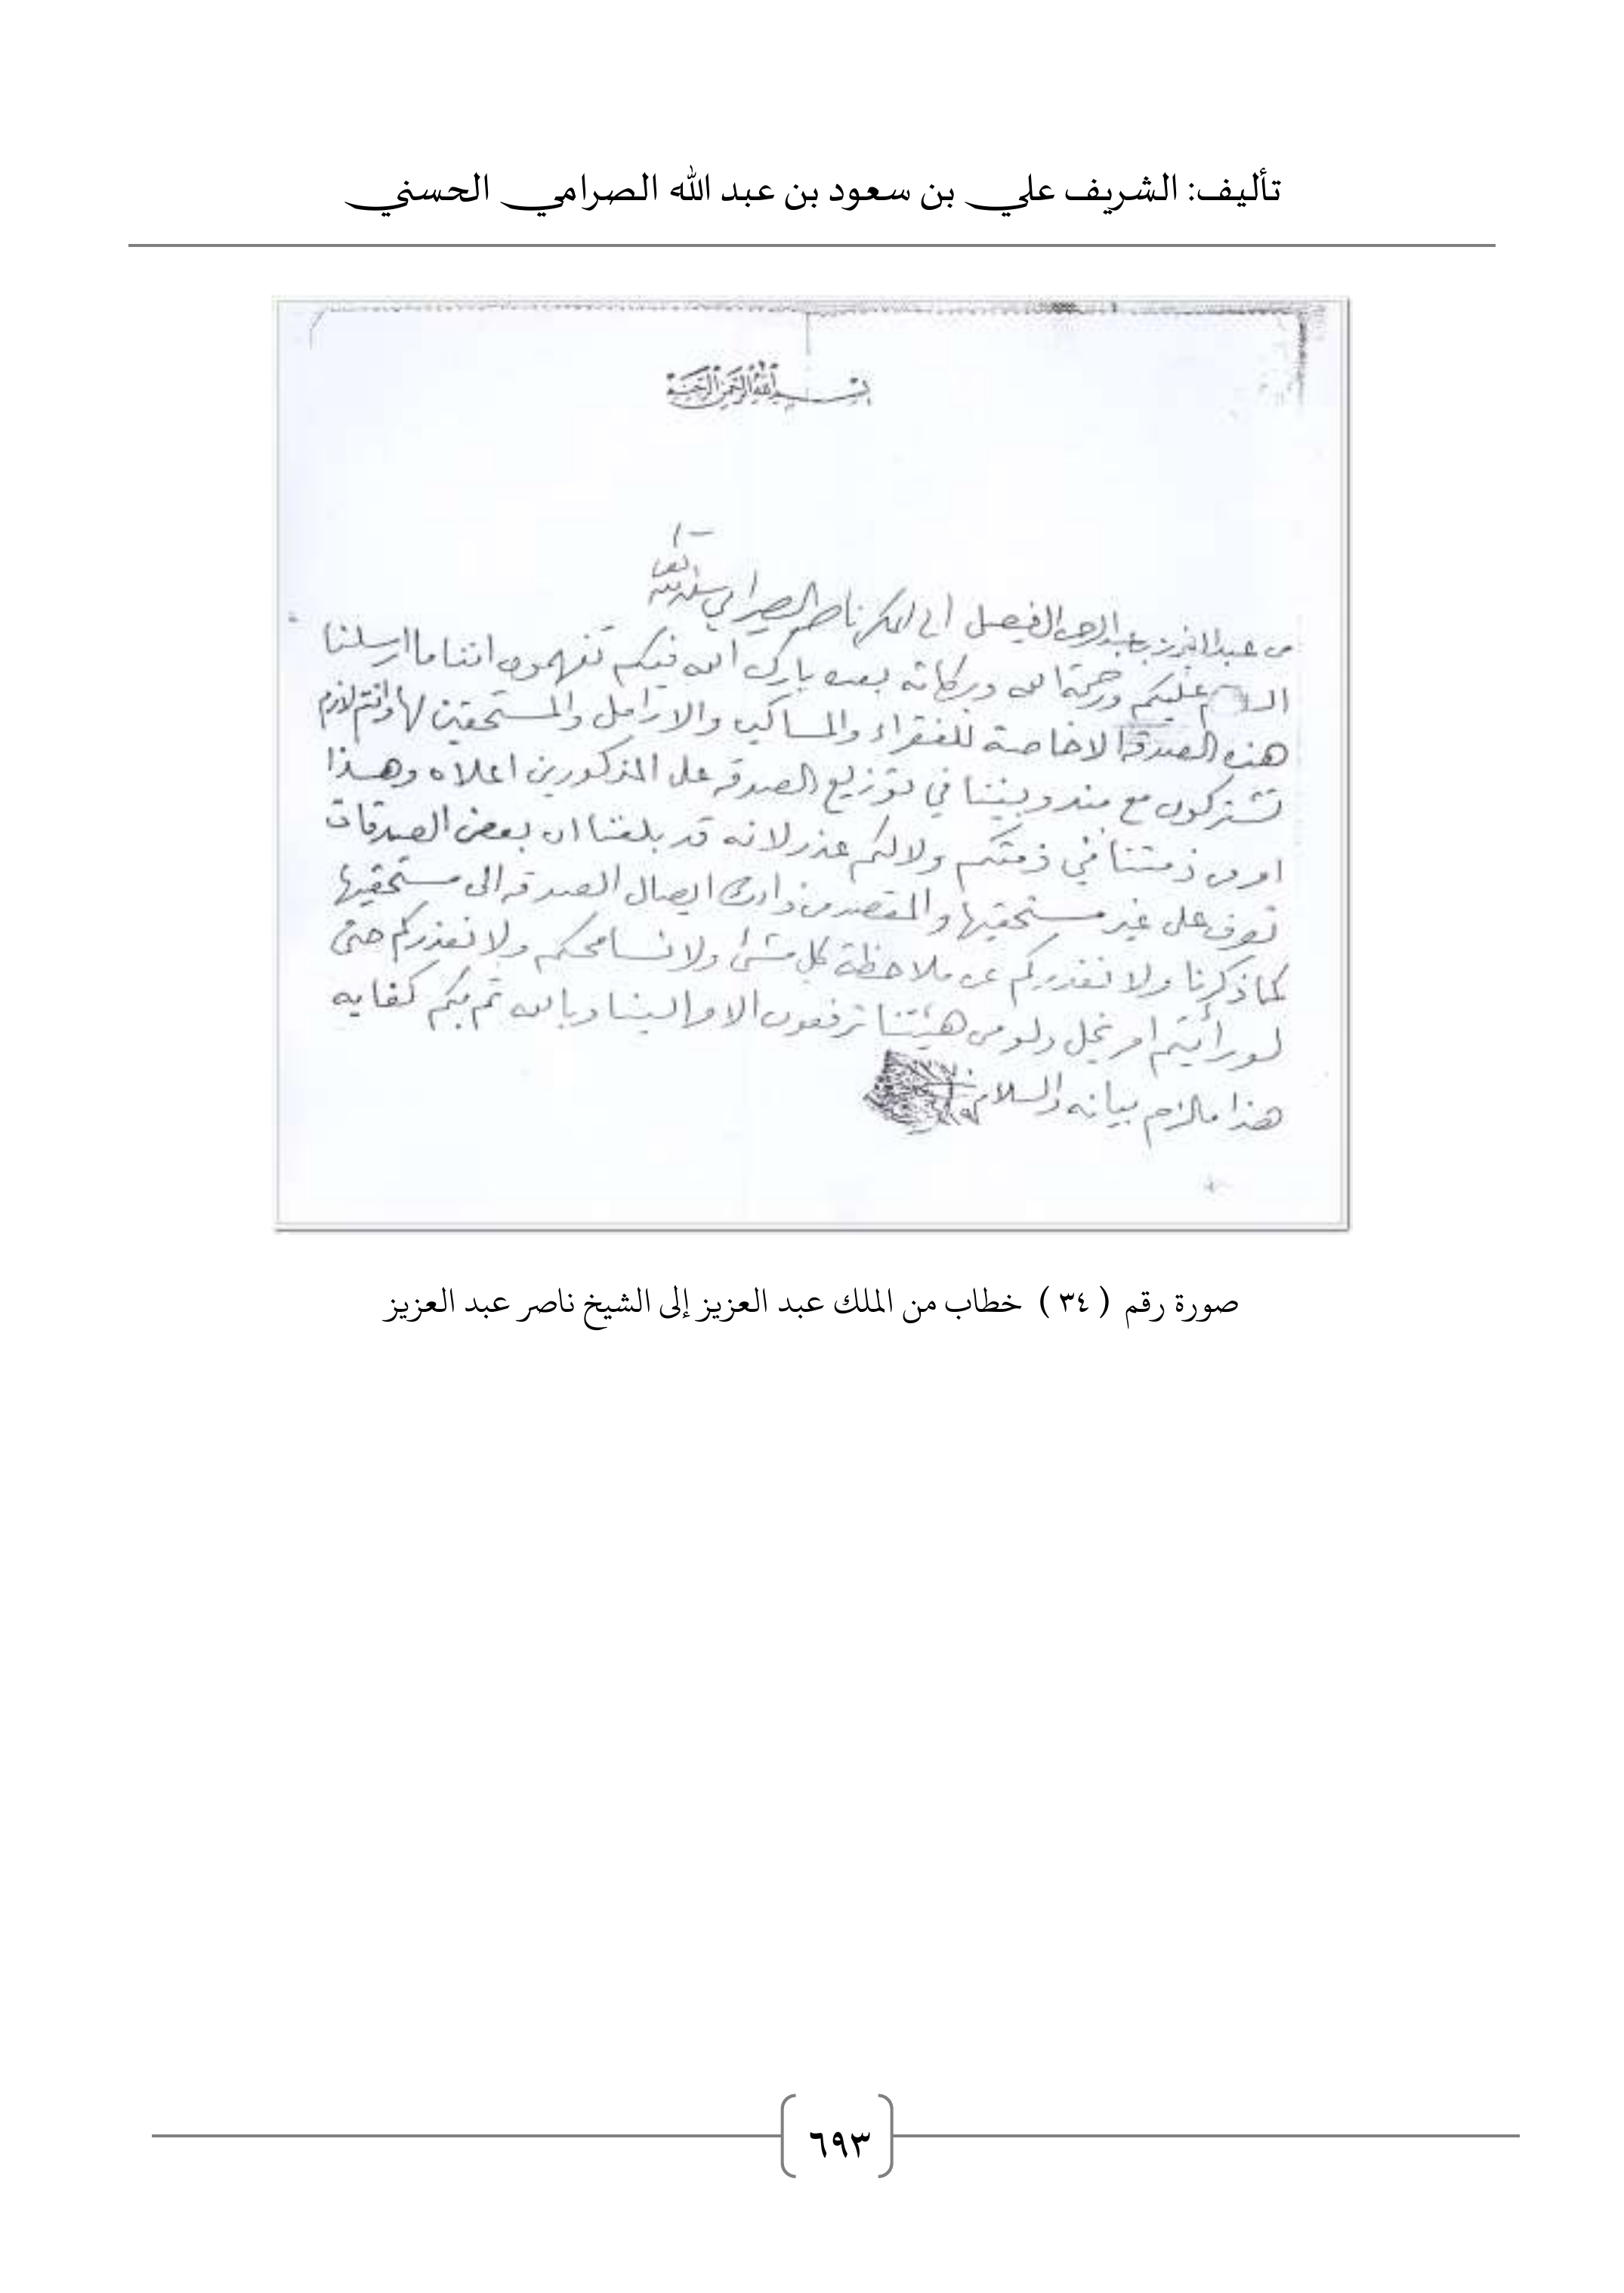 تأليف: الشريف علي بن سعود بن عبد الله الصرامي الحسني
بسم الله الرحمن الرحيم
من عبدالعزيز بن عبدالرحمن الفيصل الى المكرم ناصر الصرامي سلمه الله تعالى
السلام عليكم ورحمة الله وبركاته بعده بارك الله فيكم تفهمون اننا ما ارسلنا
هذه الصدقة الا خاصة للفقراء والمساكين والارامل والمستحقين لها وانتم لازم
تشتركون مع مندوبيننا في توزيع الصدقه على المذكورين اعلاه وهذا
امر من ذمتنا في ذمتكم ولالكم عذر لانه قد بلغنا ان بعض الصدقات
على غير مستحقيها والمقصد من ذلك ايصال الصدقه الى مستحقيها
كما ذكرنا ولا نعذركم عن ملاحظة كل شئ ولا نسامحكم ولا نعذركم حتى
لو رأيتم امر يخل ولو من هيئتنا ترفعون الامر الينا وبالله ثم بكم كفايه
هذا مالزم بيانه والسلام
صورة رقم ( ٣٤ ) خطاب من الملك عبد العزيز إلى الشيخ ناصر عبد العزيز
٦٩٣